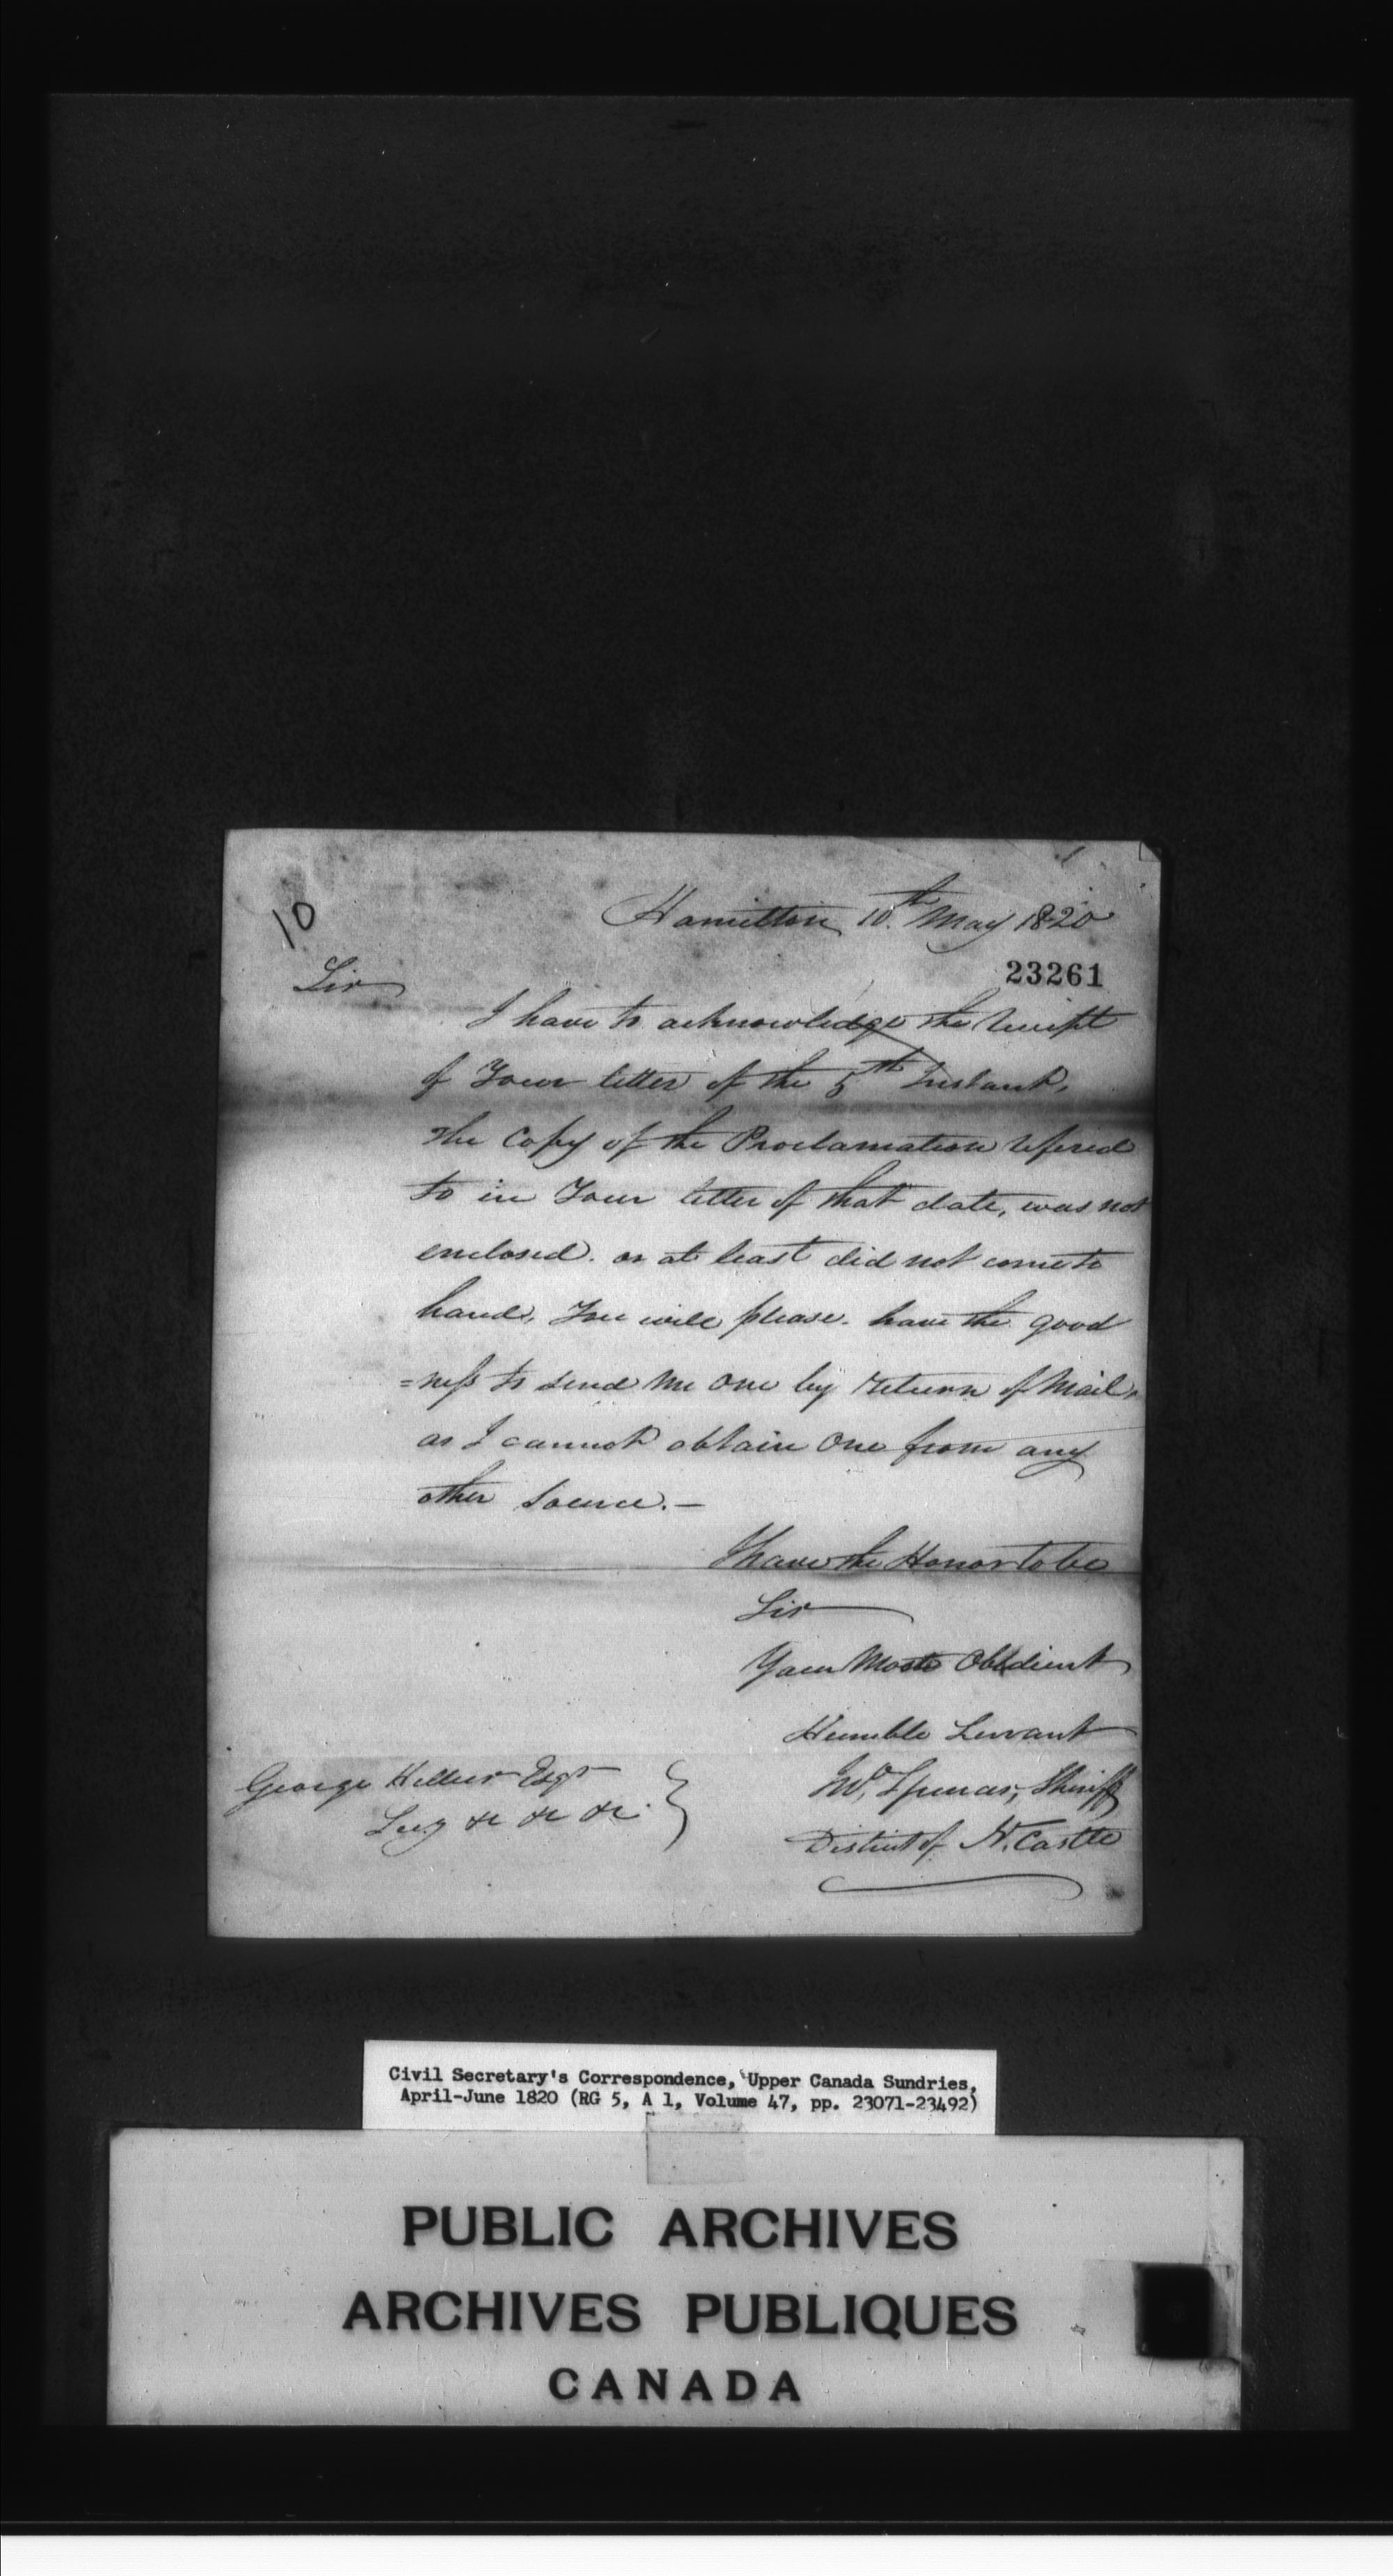 10
Hamilton 10th May 1820
23261
Sir
I have to acknowledge the receipt
of Your letter of the 5th Instant,
the Copy of the Proclamation refered
to in Your letter of that date, was not
enclosed. or at least did not come to
hand, You will please. have the good
=ness to send me One by return of Mail,
as I cannot obtain One from any
other Source.—
I have the Honor to be
Sir
Your Most Obedient
Humble Servant
Spencer, Sheriff
District of N. Castle
George Hillier Esqr
&c &c &c
Civil Secretary's Correspondence, Upper Canada Sundries,
April-June 1820 (RG 5, A 1, Volume 47, pp. 23071-23492)
PUBLIC ARCHIVES
ARCHIVES PUBLIQUES
CANADA